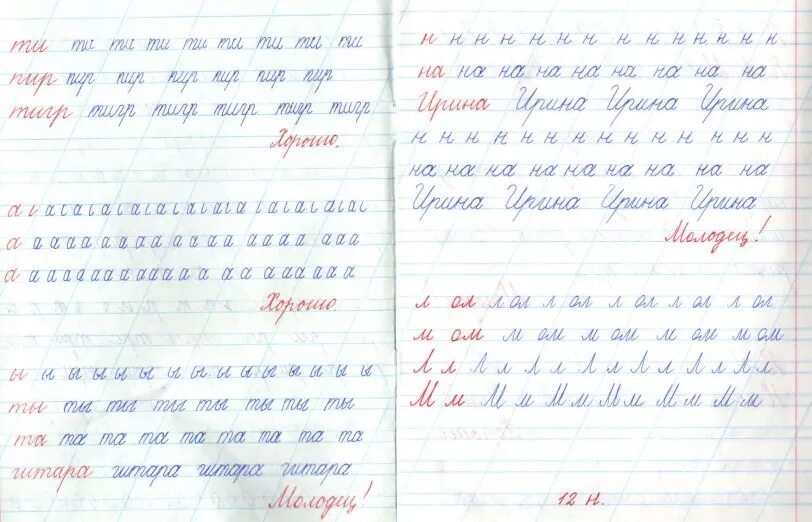 ти ти ти ти ти ти ти ти ти
пир пир пир пир пир пир пир
тигр тигр тигр тигр тигр тигр
Хорошо.
а а а а а а а а а а а а а
а а а а а а а а а а а а а а а а а
а а а а а а а а а а а а а а а а а
Хорошо.
ы ы ы ы ы ы ы ы ы ы ы ы ы ы ы
ты ты ты ты ты ты ты ты
та та та та та та та та та
гитара гитара гитара гитара
Молодец!
н н н н н н н н н н н н н
на на на на на на на на на
Ирина Ирина Ирина Ирина
н н н н н н н н н н н н н н
на на на на на на на на на
Ирина Ирина Ирина Ирина
Молодец!
л ол л ол л ол л ол л ол л ол
м ом м ом м ом м ом м ом
Л л Л л Л л Л л Л л Л л Л л
М м М м М м М м М м М м
12 н.